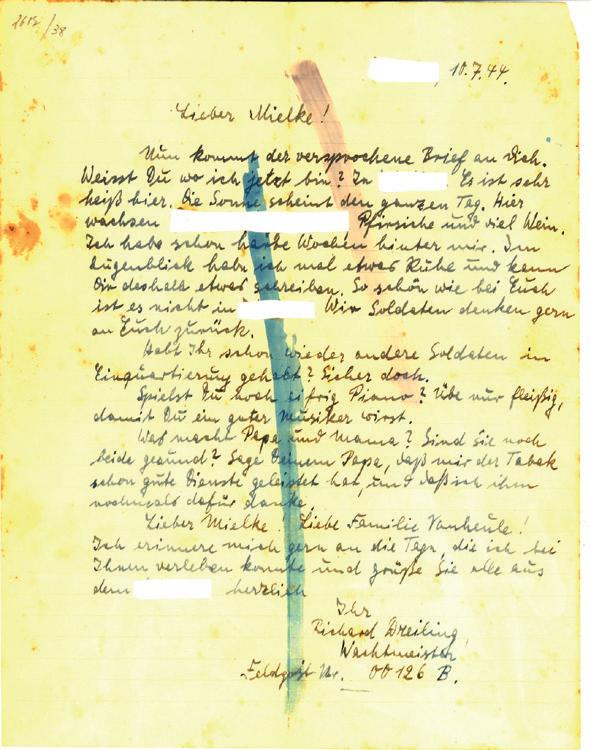 2612/38
, 10.7.44.
Lieber Mielke!
Nun kommt der versprochene Brief an Dich.
Weisst Du wo ich jetzt bin? In Es ist sehr
heiß hier. Die Sonne scheint den ganzen Tag. Hier
wachsen Pfirsiche und viel Wein.
Ich habe schon harte Wochen hinter mir. Im
Augenblick habe ich mal etwas Ruhe und kann
Dir deshalb etwas schreiben. So schön wie bei Euch
ist es nicht in Wir Soldaten denken gern
an Euch zurück.
Habt Ihr schon wieder andere Soldaten in
Einquartierung gehabt? Sicher doch.
Spielst Du noch eifrig Piano? Übe nur fleißig,
damit Du ein guter Musiker wirst.
Was macht Papa und Mama? Sind sie noch
beide gesund? Sage Deinem Papa, daß mir der Tabak
schon gute Dienste geleistet hat, und daß ich ihm
nochmals dafür danke.
Lieber Mielke! Liebe Familie Vanheule!
Ich erinnere mich gern an die Tage, die ich bei
Ihnen verleben konnte und grüße Sie alle aus
dem herzlich
Ihr
Richard Dreiling,
Wachtmeister
Feldpost Nr. 00126 B.